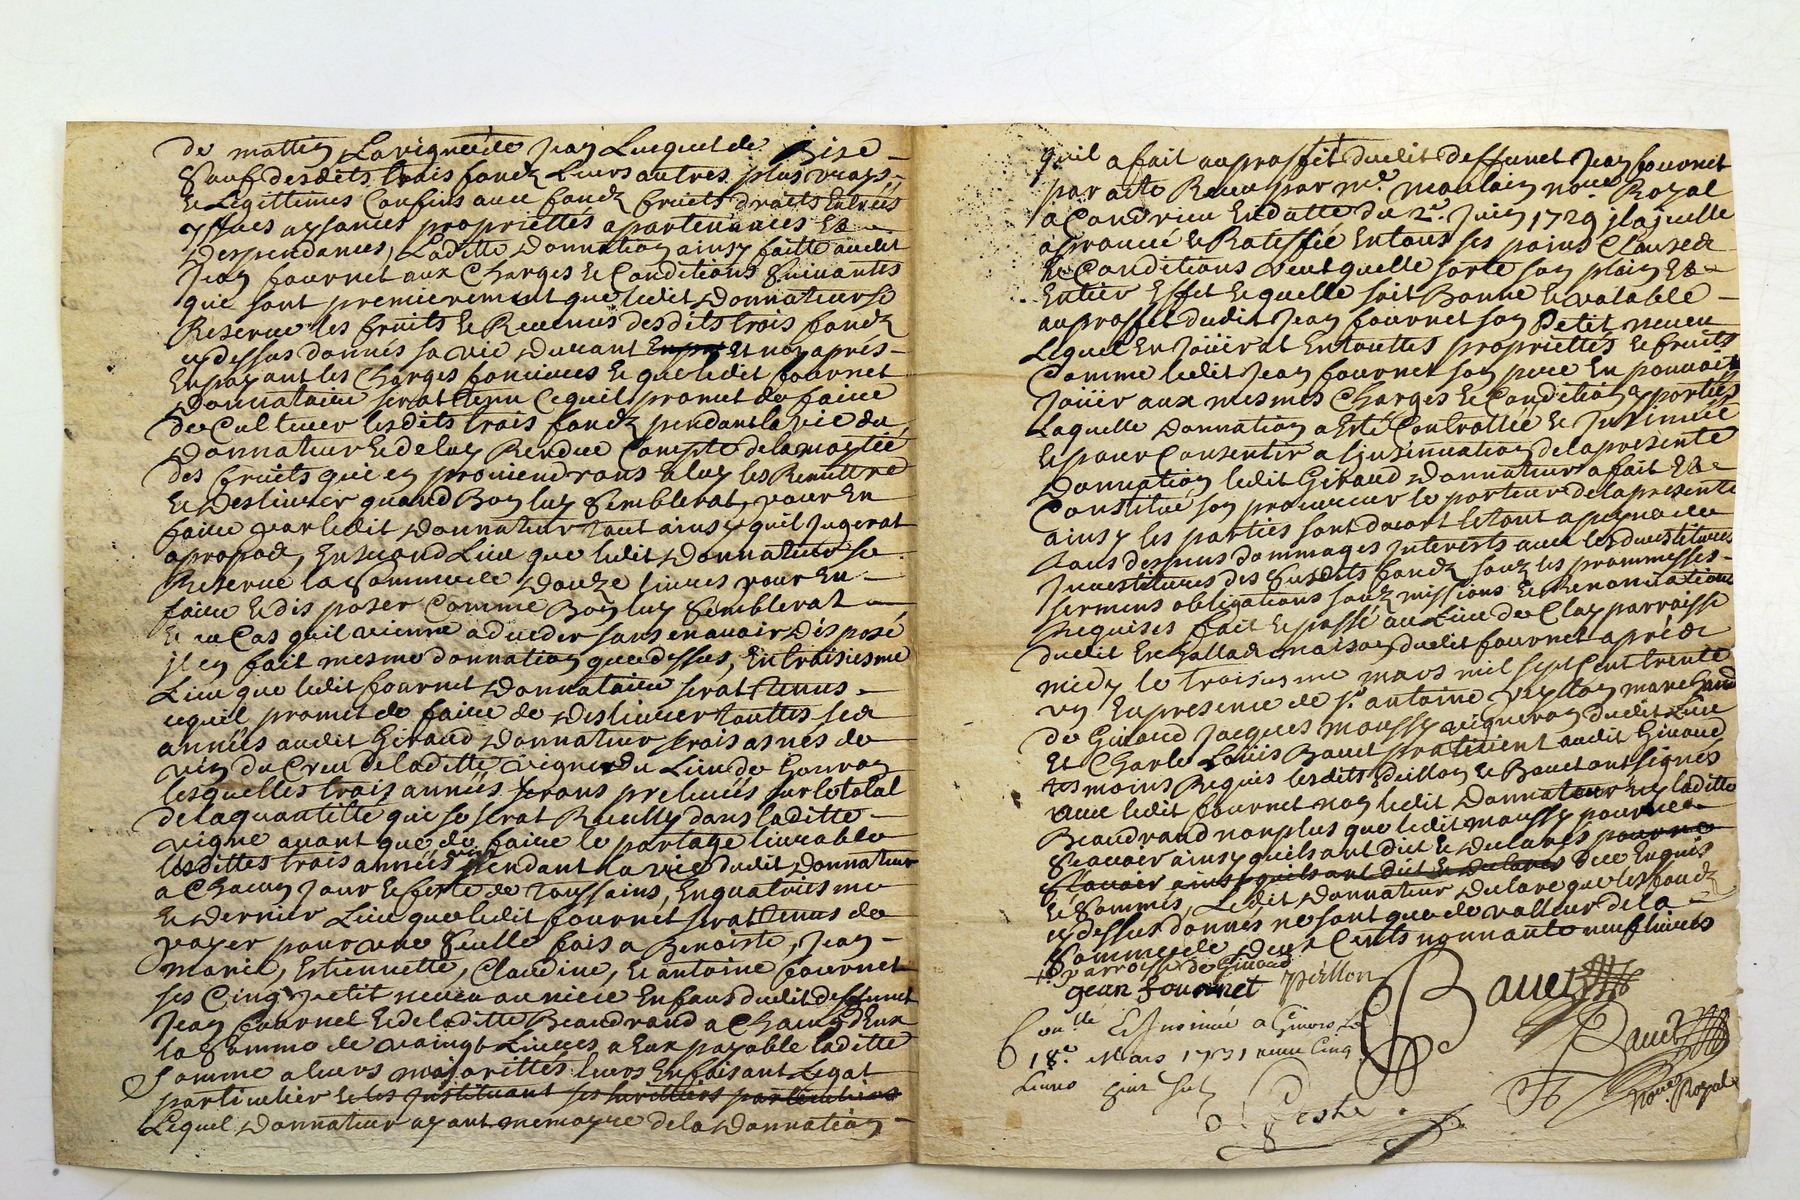 de mattin La vigne de Jean Luequet de Bize
Sauf desdits trois fondz Leurs autres plus vrays
& Legittimes Confins avec fondz fruits droits Entrées
yssues aysances propriettes apartenances Et
despendances, Laditte Donnation ainsy faitte audit
Jean fournet aux Charges & Conditions Suivantes
qui sont premierement que ledit Donnateur se
Reserve les fruits & Revenus desdits trois fondz
cy dessus donnés sa vie Durant Et non aprés
En payant les Charges foncieres & que ledit fournet
Donnataire serat tenu Ce quil promet de faire
de Cultiver lesdits trois fondz pendant la vie du
Donnateur & de luy Rendre Compte de la moytié
des fruits qui en proviendrons & luy les Remettre
& Deslivrer quand Bon luy Semblerat, pour En
faire par ledit Donnateur tout ainsy quil Jugerat
a propos, En second Lieu que ledit Donnateur se
Reserve la Somme de Douze livres pour En
faire & disposer Comme Bon luy Semblerat
& au Cas quil vienne a deceder sans en avoir Disposé
jl en fait mesme donnation que dessus, En troisiesme
Lieu que ledit fournet Donnataire serat tenus
ce quil promet de faire de Deslivrer touttes les
années audit Giraud Donnateur trois asnés de
vin du Creu de laditte vigne du Lieu de Gourron
lesquelles trois annéés serons prelevéés sur le total
de la quantitte qui se serat Recully dans laditte
vigne avant que de faire le partage livrable
lesdittes trois annéés pendant la vie dudit Donnateur
a Chacun Jour & feste de Toussains, En quatriesme
& Dernier Lieu que ledit fournet serat tenus de
payer pour une Seulle fois a Benoiste, Jean
marie, Estiennette, Claudine, & antoine fournet
ses Cinq petit neveu ou niece Enfans dudit deffunct
Jean fournet & de laditte Beaudrand a Chacung d'Eux
la Somme de vaingt Livres a Eux payable laditte
Somme a leurs majorittés leurs En faisant Legat
particulier & les Jnstituant ses heritiers particuliers
Lequel Donnateur ayant memoyre de la Donnation
quil a fait au proffit dudit deffunct Jean fournet
par acte Receu par me. moulain nore Royal
a Condrieu En datte du 2e. Juin 1729 jl a jcelle
aprouvé & Rateffiée En tous ses poins Clauses
& Conditions veut quelle sorte son plain Et
Entier Effet & quelle soit Bonne & valable
au proffit dudit Jean fournet son Petit neveu
Lequel En Joüirat En touttes propriettes & fruits
Comme ledit Jean fournet son pere En pouvait
Joüir aux mesmes Charges & Conditions y portées
Laquelle Donnation a Esté Controllée & Jnsinuée
& pour Consentir a ljnsinuation de la presente
Donnation ledit Giraud Donnateur a fait Et
Constitué son procureur le porteur de la presente
ainsy les parties sont dacort le tout a peyne de
tous despens dommages Jnterests avec les devestitures
Jnvestitures des Susdits fondz souz les prommesses
sermens obligations souzmissions & Renonciations
Requises fait & passé au Lieu de Clay parroisse
dudit maison dudit fournet aprés
midy le troisiesme mars mil sept Cent trente
un En presence de sr. antoine peyllon marchand
de Givord Jacques moussy vigneron dudit Lieu
Et Charle Loüis Bauet praticient audit Givord
tesmoins Requis lesdits peillon & Bauet ont signés
avec ledit fournet non ledit Donnateur ny laditte
Beaudrand non plus que ledit moussy pour ne
Sçavoir ainsy quils ont dit & declarés pour ne
sçavoir ainsy quils ont dit & declarés De ce Enquis
& Sommés, Ledit Donnateur Declare que les fondz
cy dessus donnés ne sont que de valleur de la
Somme de deux Cents nonnante neuf livres
+ parroisse de Givord
jean fournet peillon Bauet
Conllé & Jnsinué a Givors Le
18e. Mars 1731 receu Cinq
Livres
Bauet
Nore. Royal